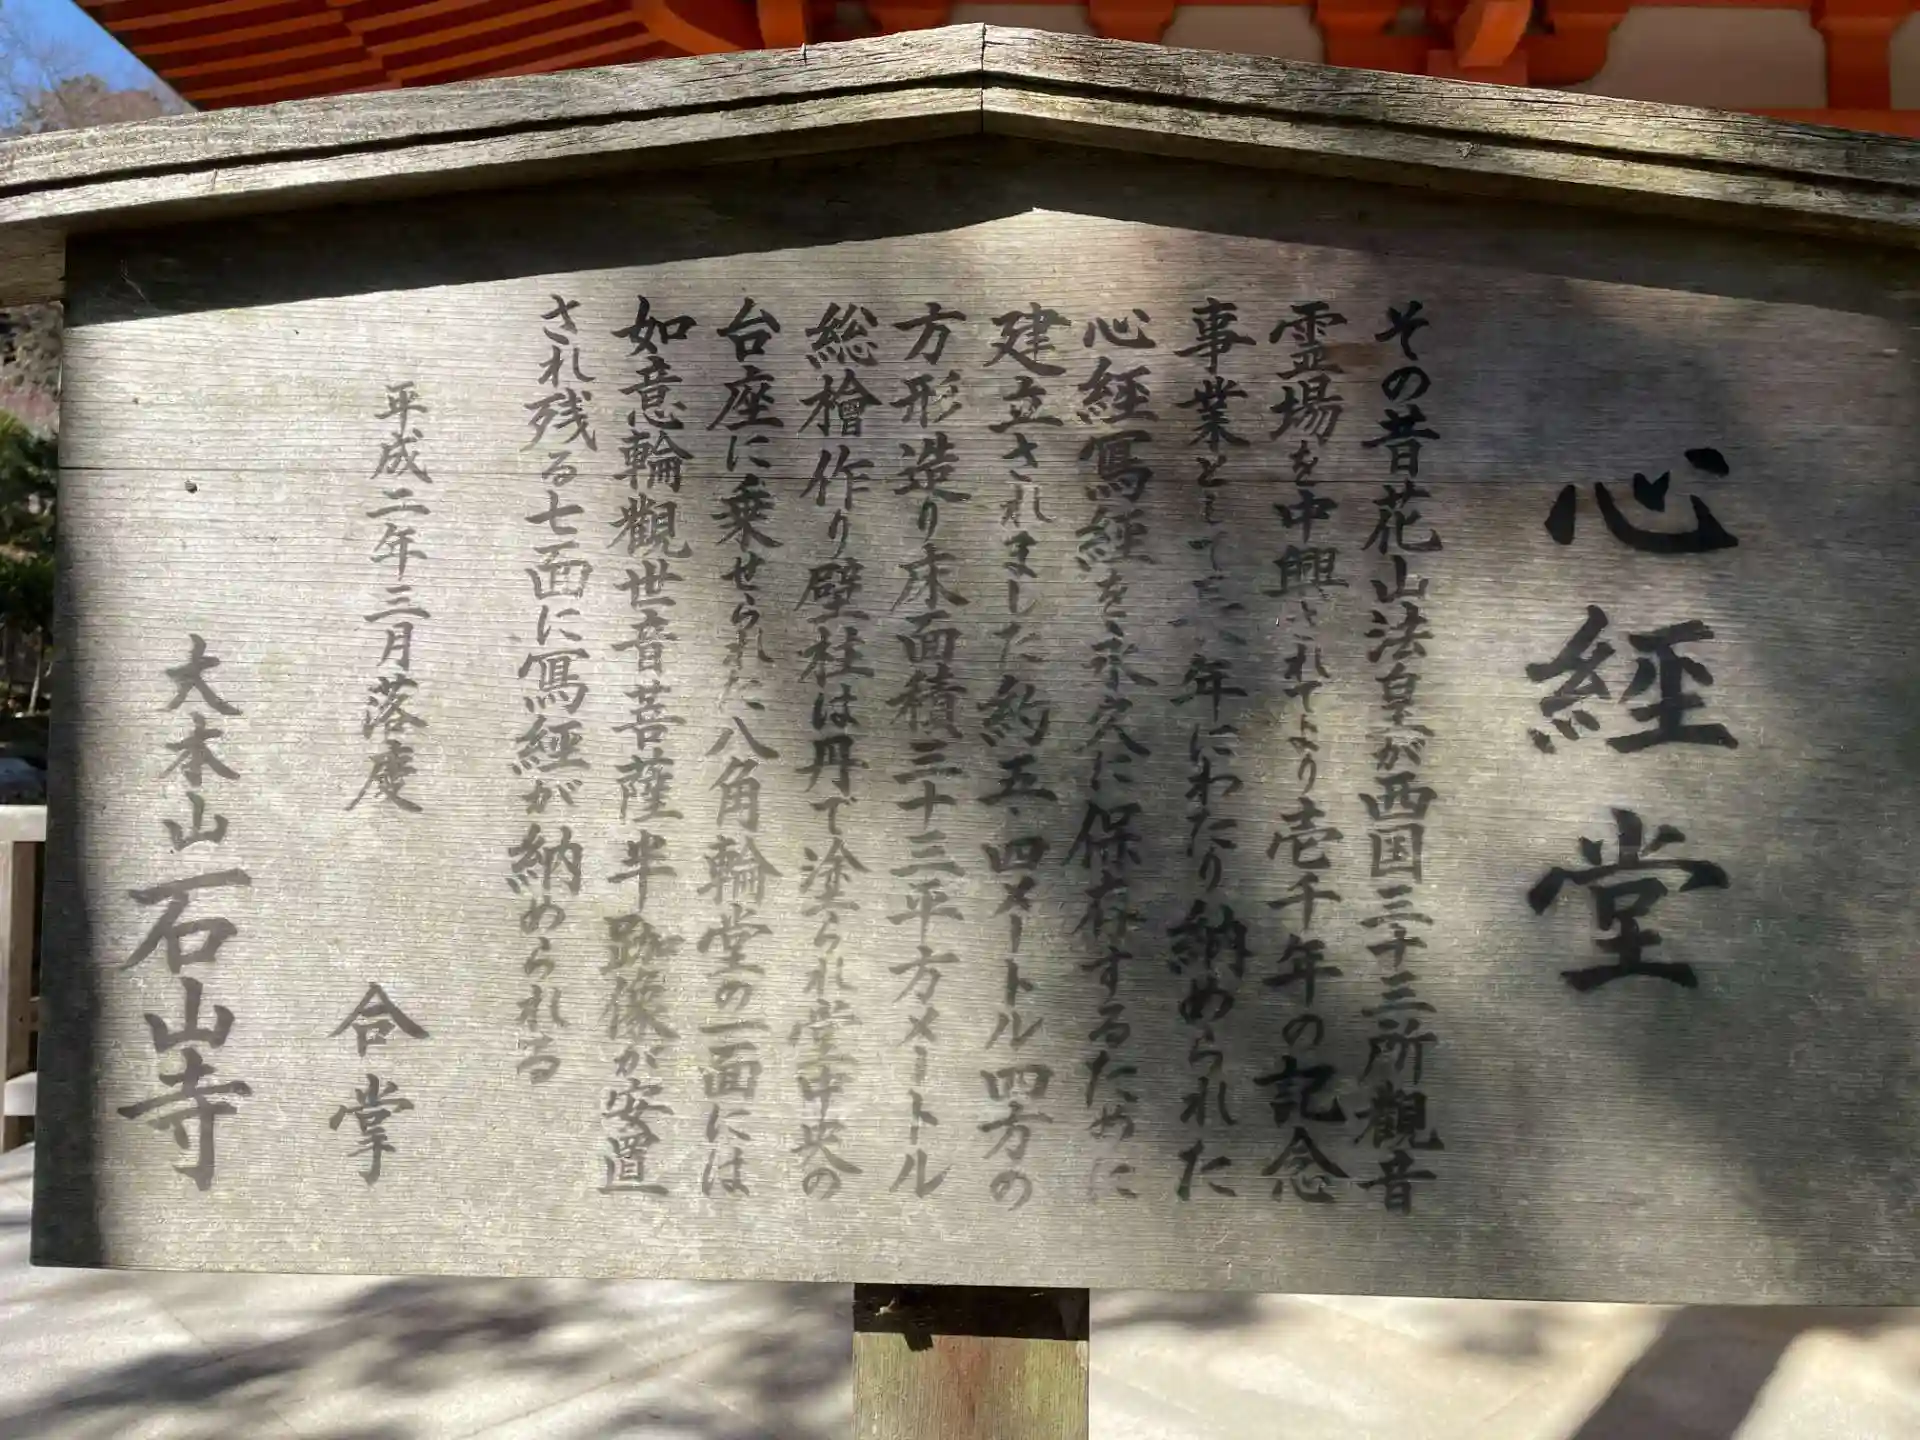 心經堂
その昔花山法皇が西国三十三所観音
霊場を中興されてより壱千年の記念
事業として 年にわたり納められた
心経寫経を永久に保存するために
建立されました約五・四メートル四方の
方形造り床面積三十三平方メートル
総檜作り壁柱は丹で塗られ堂中央の
台座に乗せられた八角輪堂の一面には
如意輪觀世音菩薩半跏像が安置
され残る七面に寫経が納められる
平成二年三月落慶 合掌
大本山石山寺